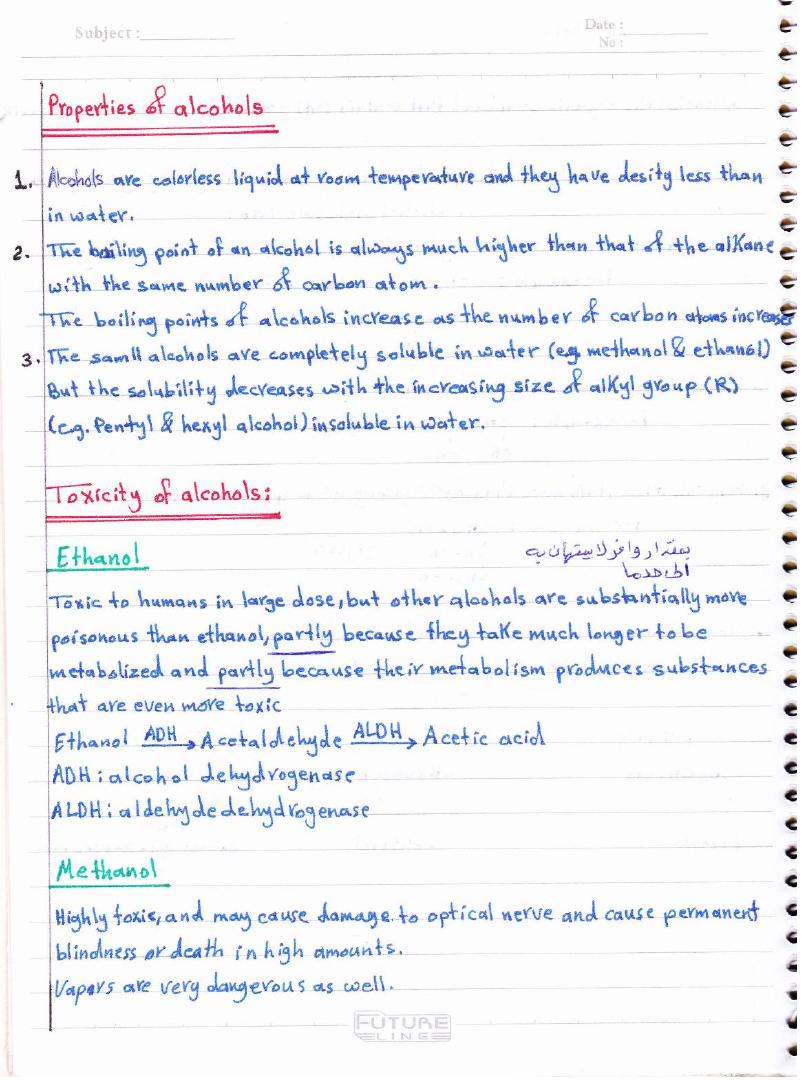 Subject :
Date :
No :
Properties of alcohols
1. Alcohols are colorless liquid at room temperature and they have desity less than
in water.
2. The boiling point of an alcohol is always much higher than that of the alkane
with the same number of carbon atom.
The boiling points of alcohols increase as the number of carbon atoms increases
3. The samll alcohols are completely soluble in water (eg methanol & ethanol)
But the solubility decreases with the increasing size of alkyl group (R)
(e.g. Pentyl & hexyl alcohol) insoluble in water.
Toxicity of alcohols:
Ethanol
بمقدار وافر لا يستهان به
الى حد ما
Toxic to humans in large dose, but other alcohols are substantially more
poisonous than ethanol, partly because they take much longer to be
metabolized and partly because their metabolism produces substances
that are even more toxic
Ethanol ADH → Acetaldehyde ALDH → Acetic acid
ADH : alcohol dehydrogenase
ALDH : aldehyde dehydrogenase
Methanol
Highly toxic, and may cause damage to optical nerve and cause permanent
blindness or death in high amounts.
Vapors are very dangerous as well.
FUTURE
LINE